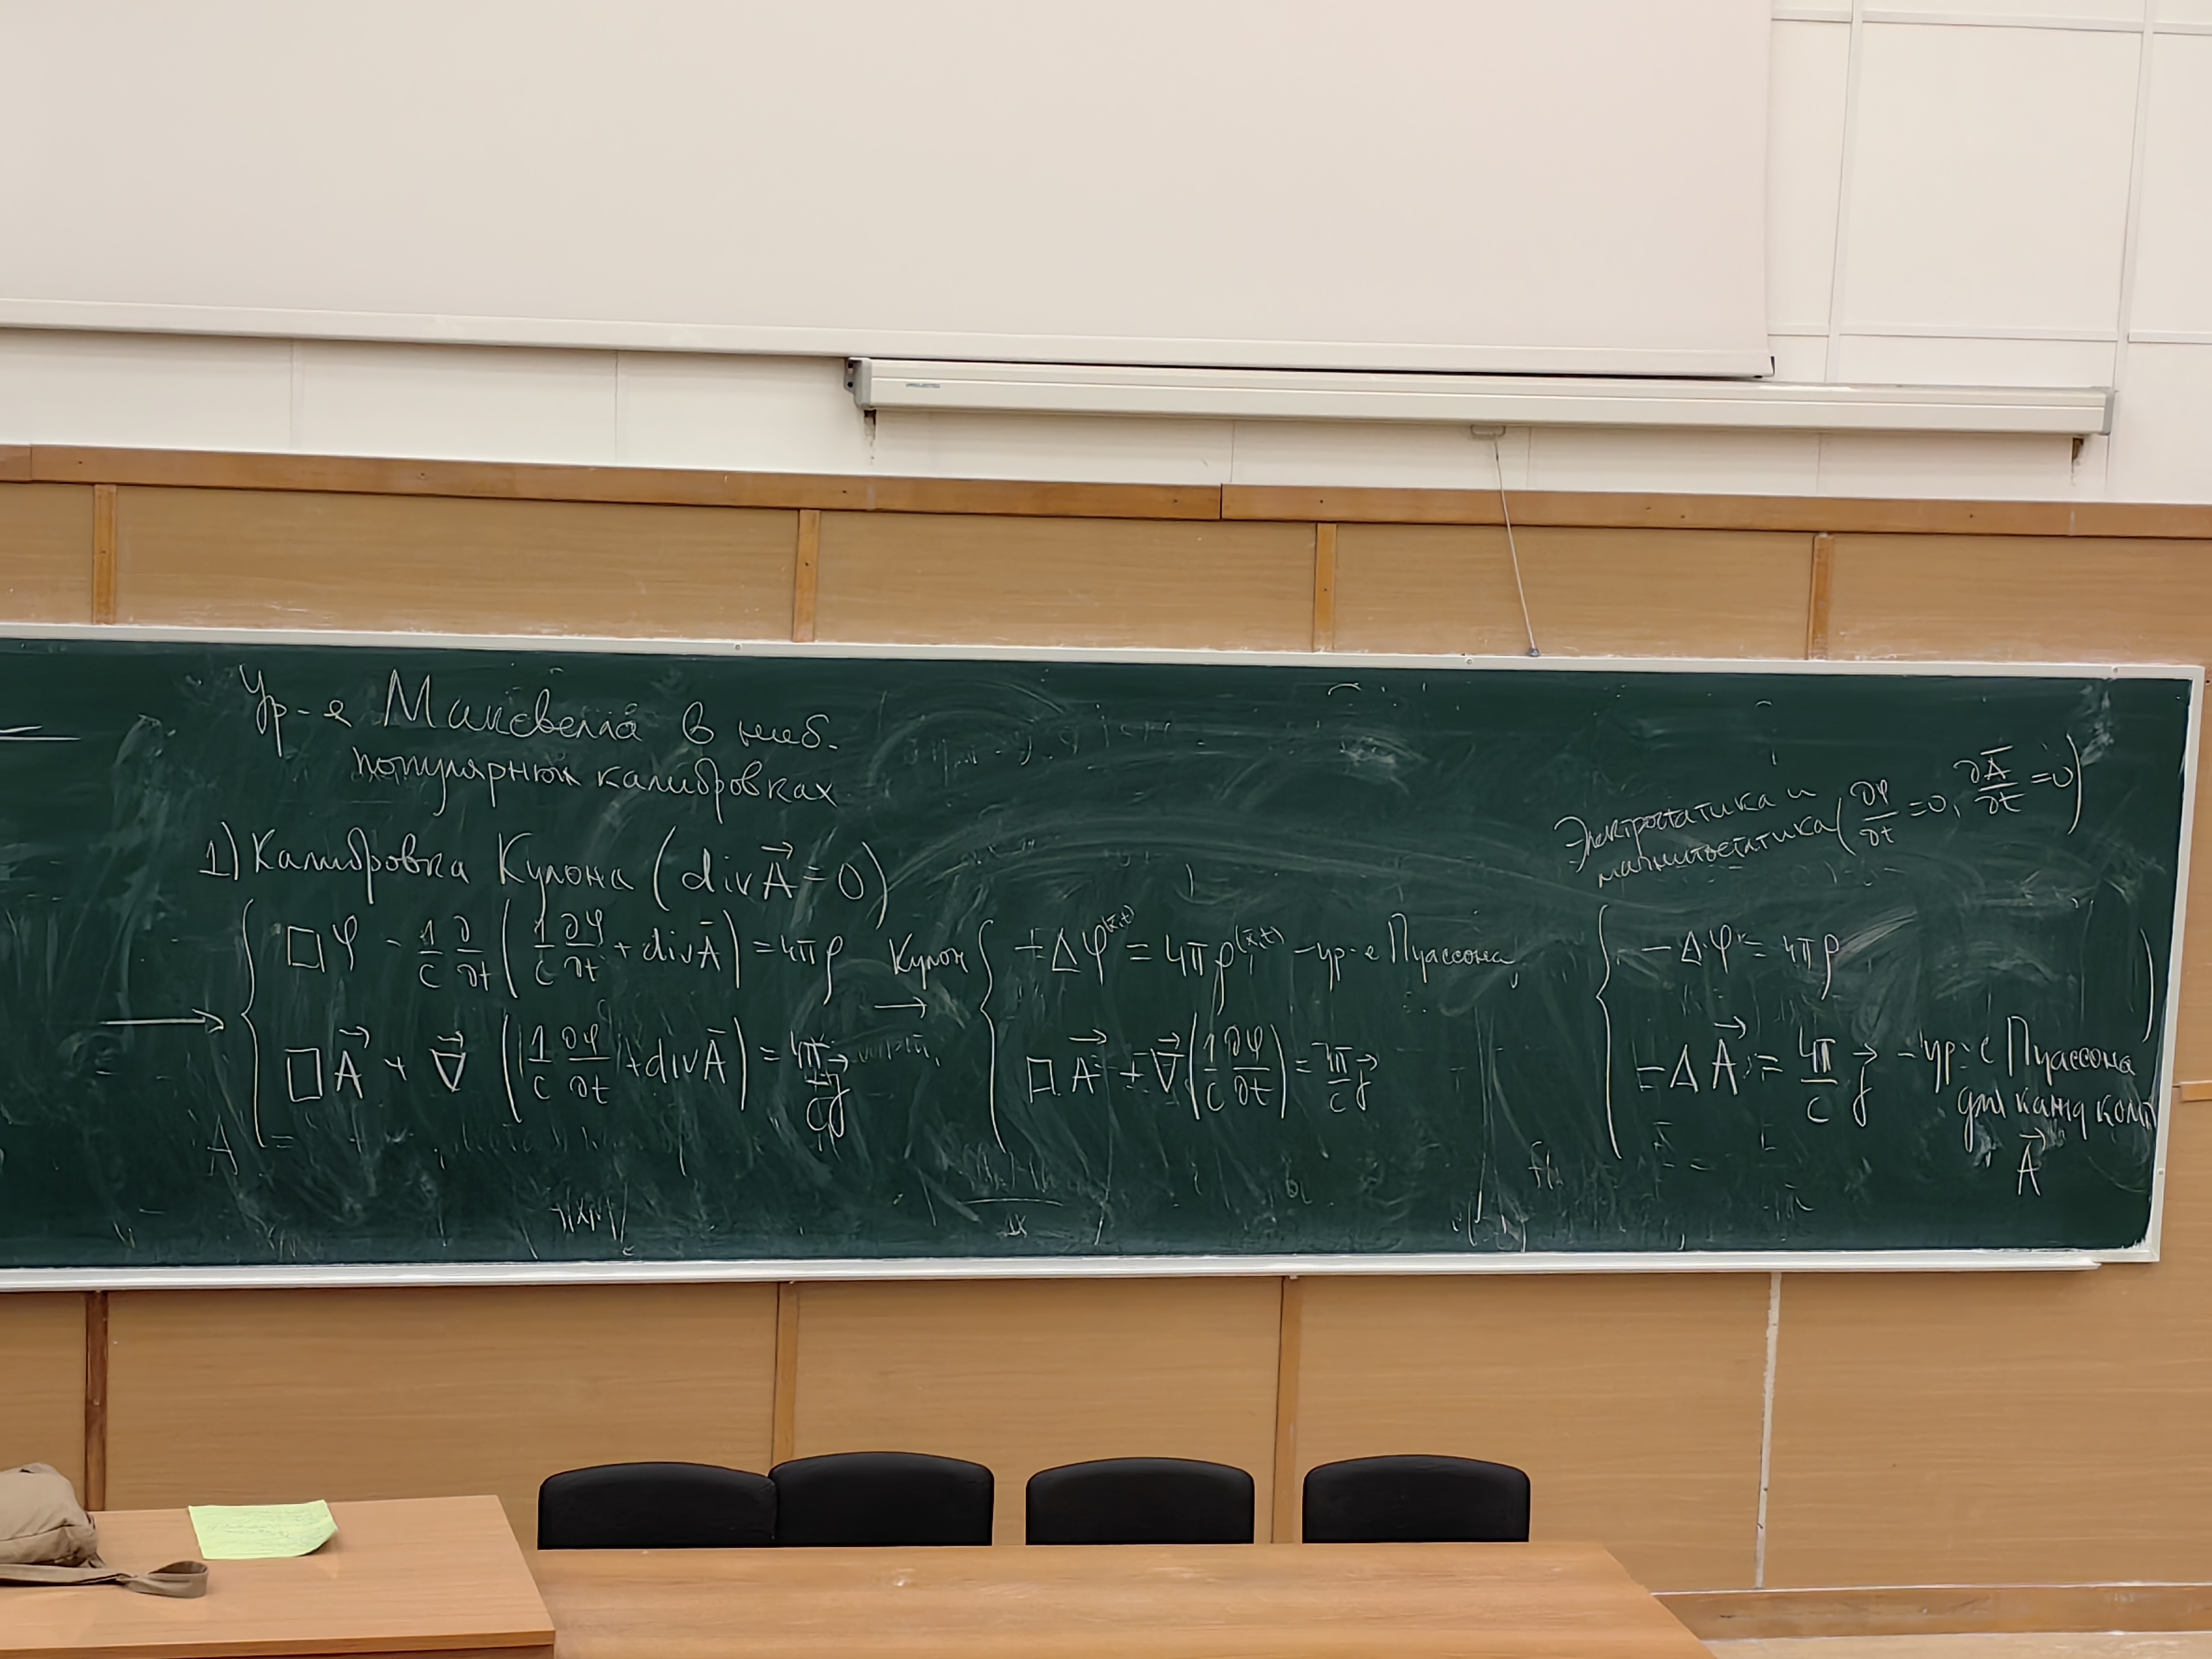 Ур-я Максвелла в наиб.
популярных калибровках
1) Калибровка Кулона (div A⃗ = 0)
□φ - 1/c ∂/∂t (1/c ∂φ/∂t + div A̅) = 4πρ
□A⃗ + ∇⃗ (1/c ∂φ/∂t + div A̅) = 4π/c j⃗
Кулон →
-Δφ(x̅,t) = 4πρ(x̅,t) - ур-е Пуассона
□A⃗ + ∇⃗(1/c ∂φ/∂t) = 4π/c j⃗
Электростатика и
магнитостатика (∂φ/∂t = 0, ∂A̅/∂t = 0)
-Δφ = 4πρ
-ΔA⃗ = 4π/c j⃗ - ур-е Пуассона
для кажд комп
A⃗